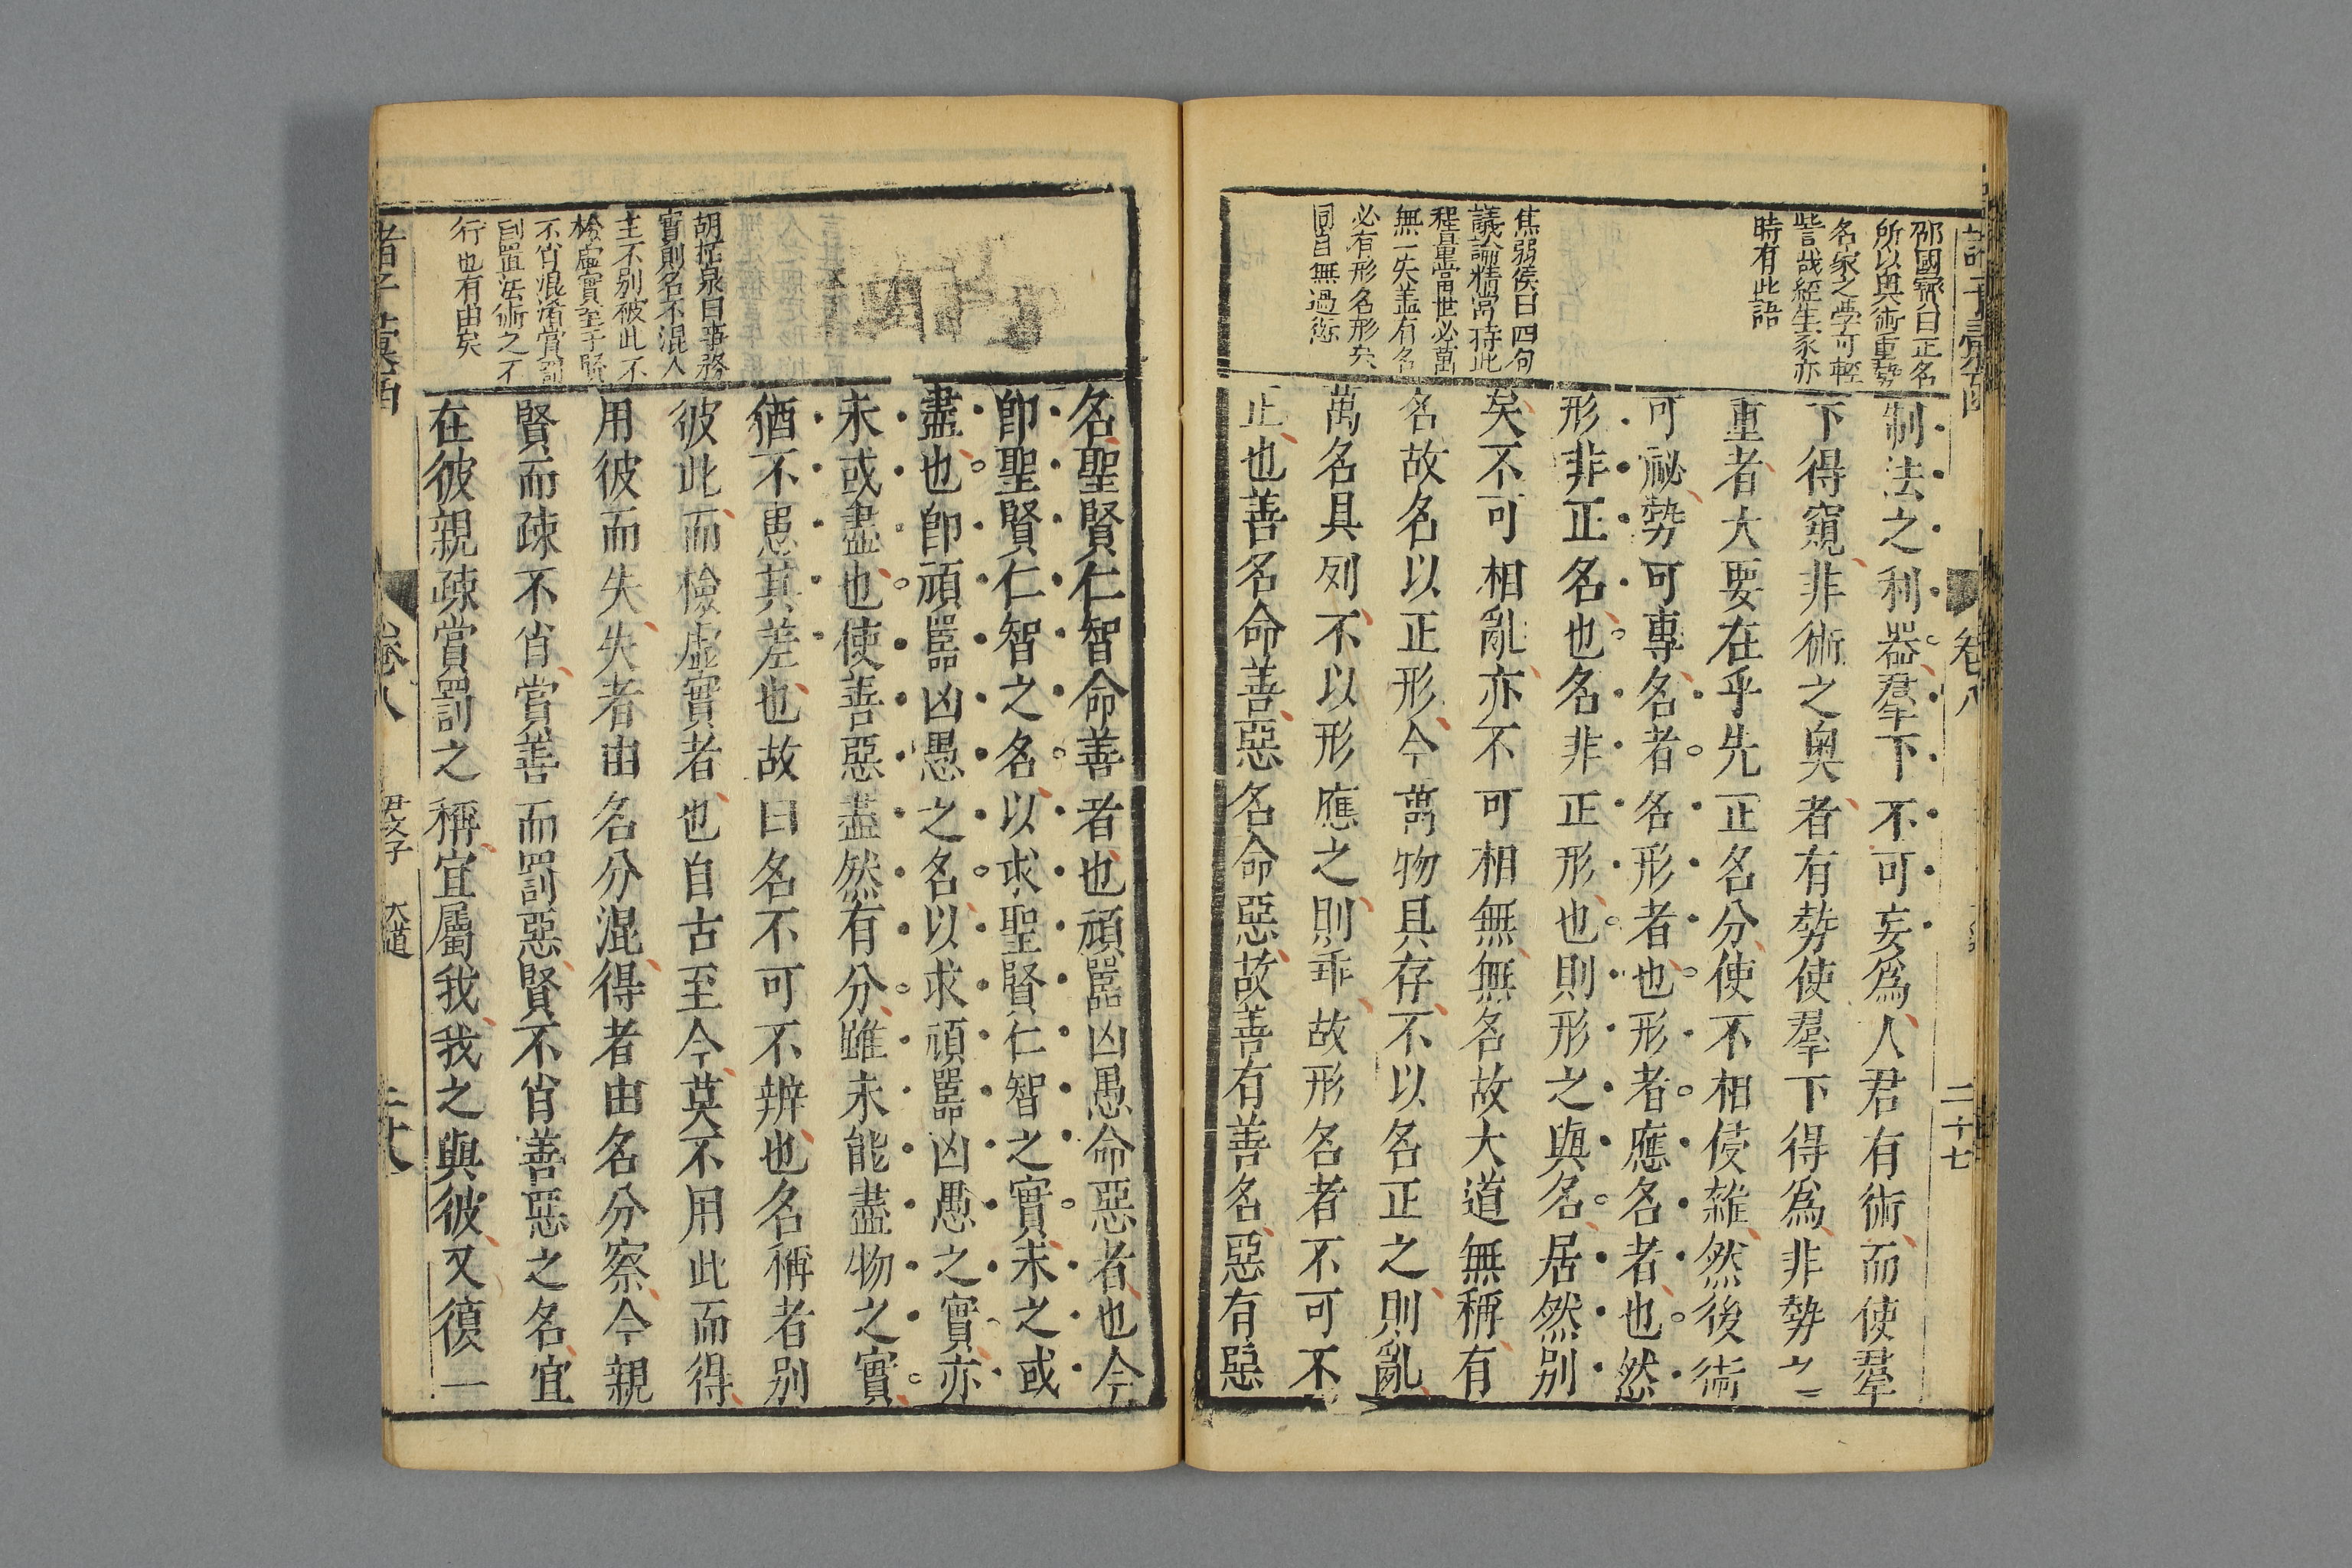 邵國賢曰正名
所以奥術重勢
名家之學可輕
訾哉經生家亦
時有此語
焦弱侯曰四句
議論精當持此
程量當世必萬
無一失盖有名
必有形名形矣
同自無過
制法之利器羣下不可妄為人君有術而使羣
下得窺非術之奥者有勢使羣下得為非勢之
重者大要在乎先正名分使不相侵雜然後術
可祕勢可專名者名形者也形者應名者也然
形非正名也名非正形也則形之與名居然别
矣不可相亂亦不可相無無名故大道無稱有
名故名以正形今萬物具存不以名正之則亂
萬名具列不以形應之則乖故形名者不可不
正也善名命善惡名命惡故善有善名惡有惡
卷八
二十七
胡 泉曰事務
實則名不混人
主不别彼此不
檢虚實至于賢
不肖混淆賞罰
倒置法術之不
行也有由矣
名聖賢仁智命善者也頑嚚凶愚命惡者也今
卽聖賢仁智之名以求聖賢仁智之實未之或
盡也卽頑嚚凶愚之名以求頑嚚凶愚之實亦
未或盡也使善惡盡然有分雖未能盡物之實
猶不患其差也故曰名不可不辨也名稱者别
彼此而檢虚實者也自古至今莫不用此而得
用彼而失失者由名分混得者由名分察今親
賢而疎不肖賞善而罰惡賢不肖善惡之名宜
在彼親疎賞罰之稱宜屬我我之與彼又復一
卷八
尹文子
大道